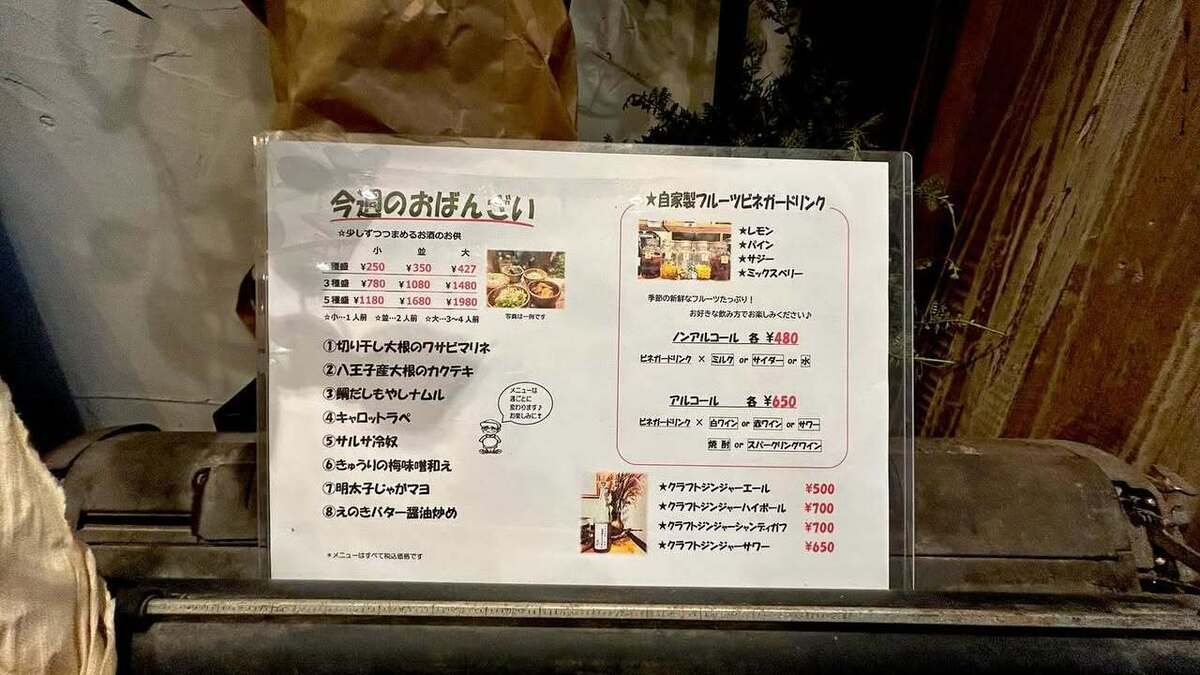 今週のおばんざい
☆少しずつつまめるお酒のお供
小 並 大
種盛 ¥250 ¥350 ¥427
3種盛 ¥780 ¥1080 ¥1480
5種盛 ¥1180 ¥1680 ¥1980
☆小…1人前 ☆並…2人前 ☆大…3~4人前
写真は一例です
①切り干し大根のワサビマリネ
②八王子産大根のカクテキ
③鯛だしもやしナムル
④キャロットラペ
⑤サルサ冷奴
⑥きゅうりの梅味噌和え
⑦明太子じゃがマヨ
⑧えのきバター醤油炒め
メニューは
週ごとに
変わります♪
お楽しみに
*メニューはすべて税込価格です
★自家製フルーツビネガードリンク
★レモン
★パイン
★サジー
★ミックスベリー
季節の新鮮なフルーツたっぷり!
お好きな飲み方でお楽しみください♪
ノンアルコール 各 ¥480
ビネガードリンク × ミルク or サイダー or 水
アルコール 各 ¥650
ビネガードリンク × 白ワイン or 赤ワイン or サワー
焼酎 or スパークリングワイン
★クラフトジンジャーエール ¥500
★クラフトジンジャーハイボール ¥700
★クラフトジンジャーシャンディガフ ¥700
★クラフトジンジャーサワー ¥650